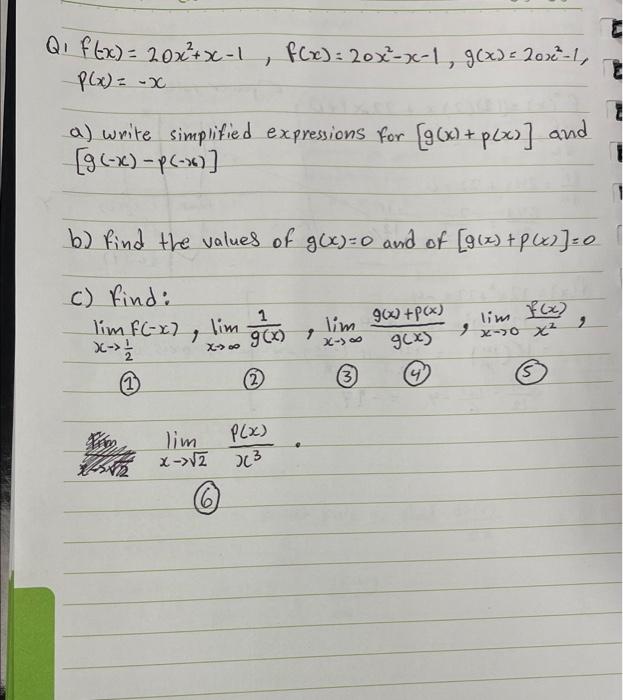 Q1 f(-x) = 20x²+x-1 , f(x) = 20x²-x-1 , g(x) = 20x²-1,
p(x) = -x
a) write simplified expressions for [g(x) + p(x)] and
[g(-x) - p(-x)]
b) find the values of g(x)=0 and of [g(x) + p(x)]=0
c) find:
lim x→1/2 f(-x) , lim x→∞ 1/g(x) , lim x→∞ g(x)+p(x)/g(x) , lim x→0 f(x)/x² ,
① ② ③ ④ ⑤
lim x→√2 p(x)/x³ .
⑥